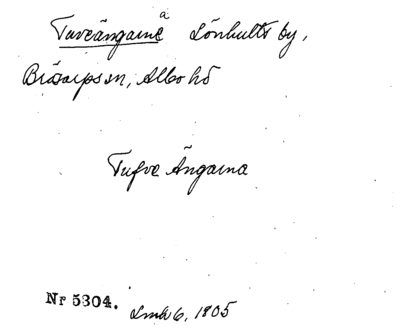 Tuveängarne a Lönhults by,
Brösarps sn, Albo hd
Tufve Ängarna
Nr 5304. Lmh 6, 1805